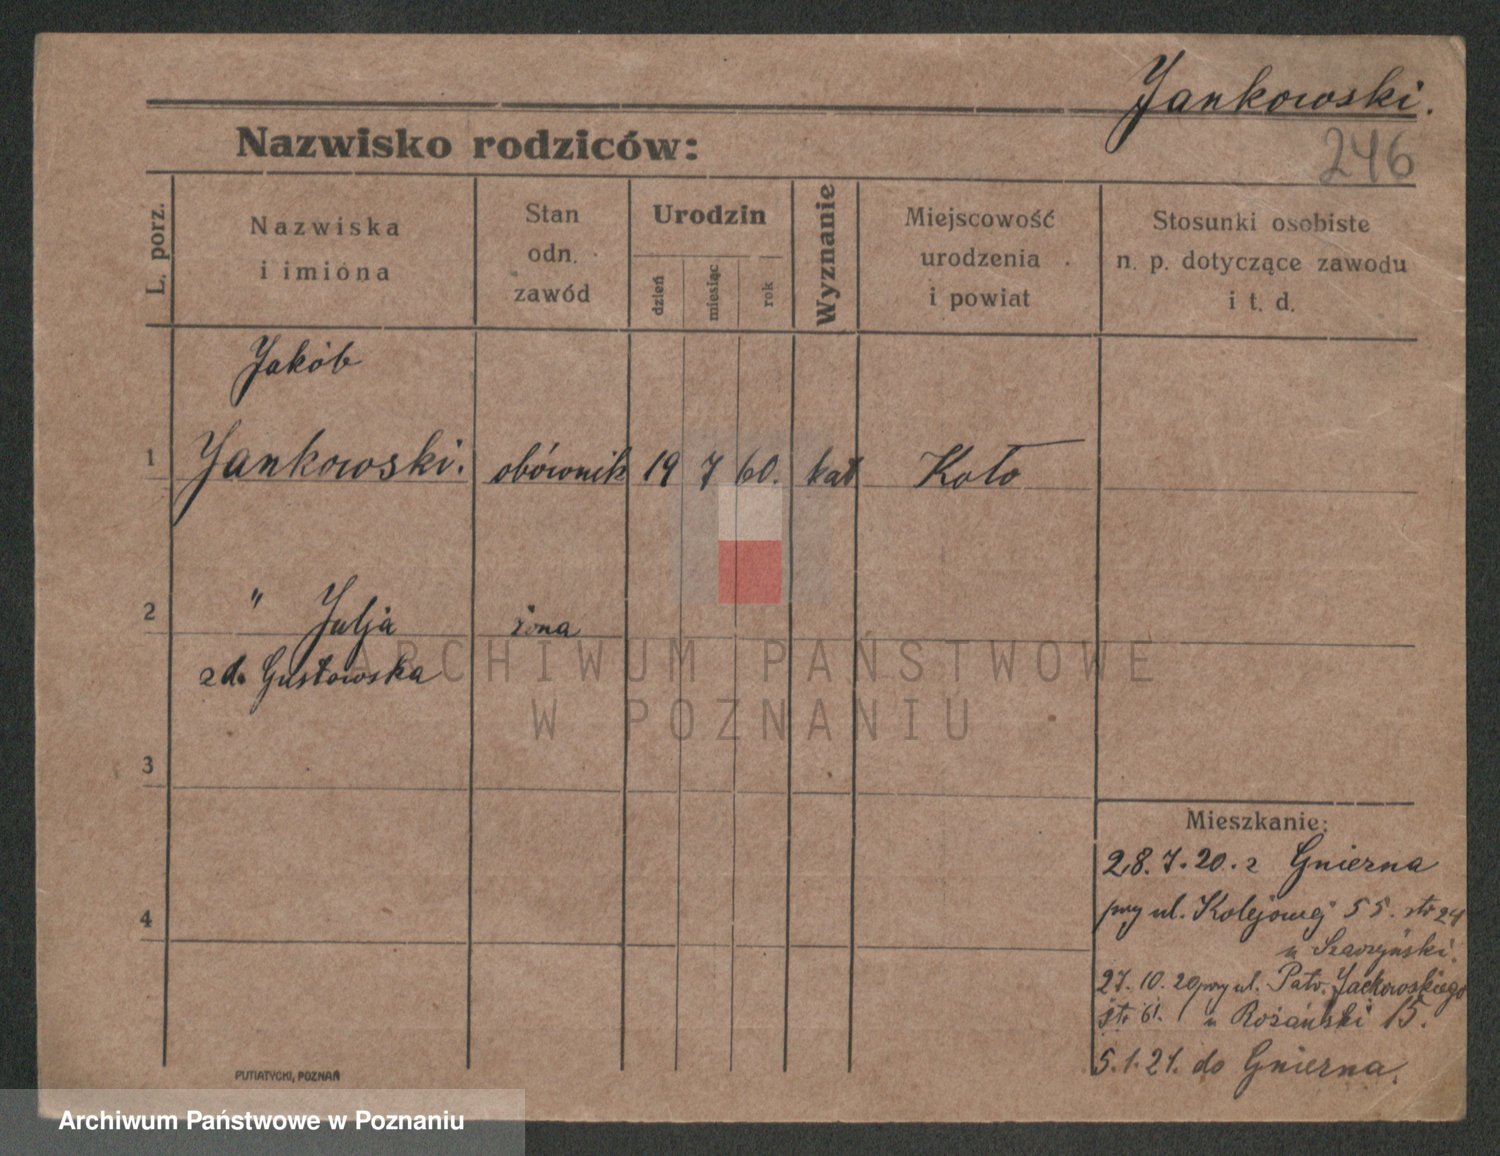 Jankowski.
246
Nazwisko rodziców:
L. porz.
Nazwiska
i imiona
Stan
odn.
zawód
Urodzin
dzień
miesiąc
rok
Wyznanie
Miejscowość
urodzenia
i powiat
Stosunki osobiste
n. p. dotyczące zawodu
i t. d.
Jakób
1 Jankowski. obównik 19 7 60. kat Koło
2 " Julja żona
zd. Gustowska
3
4
Mieszkanie:
28.7.20. z Gnierna
przy ul. Kolejowej 55. str 24
u Szarzyński.
27.10.20 przy ul. Patr. Jackowskiego
str 61. u Rożański 15.
5.1.21. do Gnierna.
PUTIATYCKI, POZNAŃ
ARCHIWUM PAŃSTWOWE
W POZNANIU
Archiwum Państwowe w Poznaniu